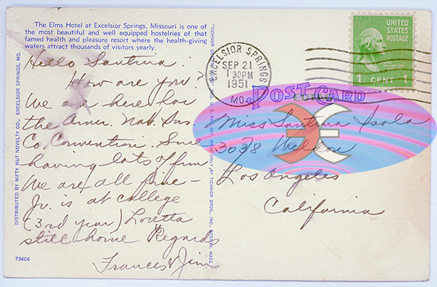 The Elms Hotel at Excelsior Springs, Missouri is one of
the most beautiful and well equipped hostelries of that
famed health and pleasure resort where the health-giving
waters attract thousands of visitors yearly.
Hello Santina:
How are you?
We are here for
the Amer. Nat. Ins.
Co. Convention. Sure
having lots of fun.
We are all fine –
Jr. is at college
(3rd year) Loretta
still home Regards
Francis & Jim
73606
DISTRIBUTED BY NIFTY NUT NOVELTY CO., EXCELSIOR SPRINGS, MO.
EXCELSIOR SPRINGS
SEP 21
1 30PM
1951
MO.
UNITED
STATES
POSTAGE
1 CENT 1
POST CARD
Miss Santina Isola
3038
Los Angeles
California